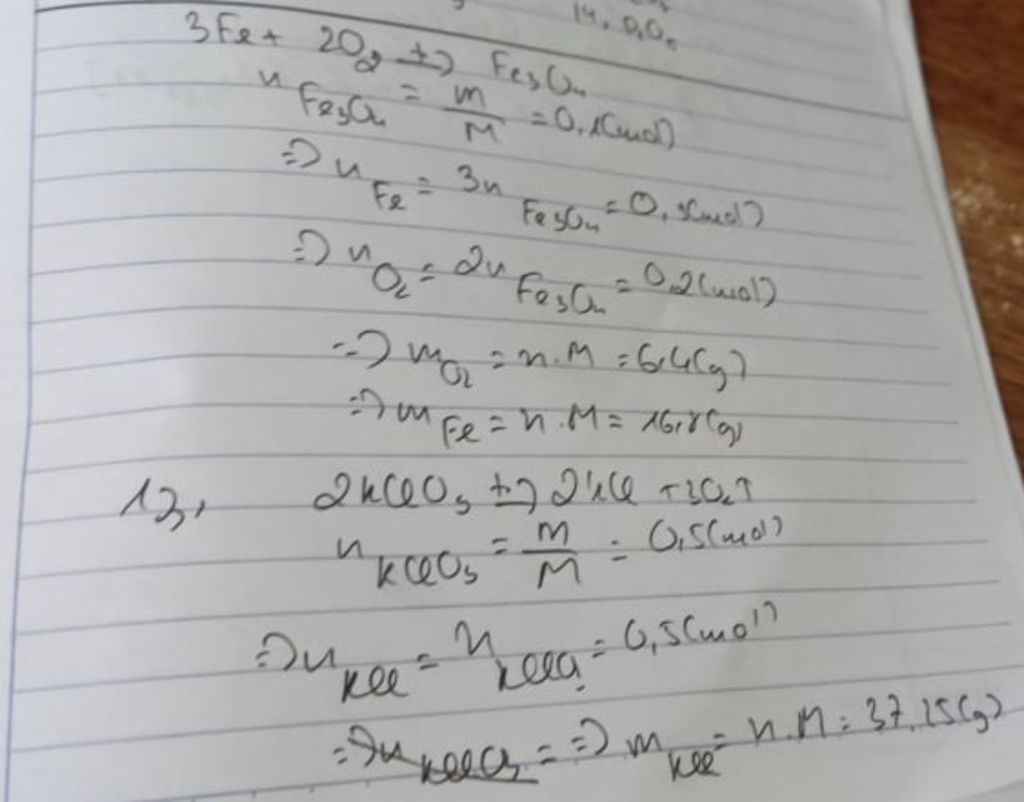 14, O₂O₅
3Fe + 2O₂ t→ Fe₃O₄
n Fe₃O₄ = m/M = 0,1(mol)
=> n Fe = 3n Fe₃O₄ = 0,3(mol)
=> n O₂ = 2n Fe₃O₄ = 0,2(mol)
=> m O₂ = n.M = 6,4(g)
=> m Fe = n.M = 16,8(g)
13, 2KClO₃ t→ 2KCl + 3O₂↑
n KClO₃ = m/M = 0,5(mol)
=> n KCl = n KClO₃ = 0,5(mol)
=> n KClO₃ = => m KCl = n.M = 37,25(g)